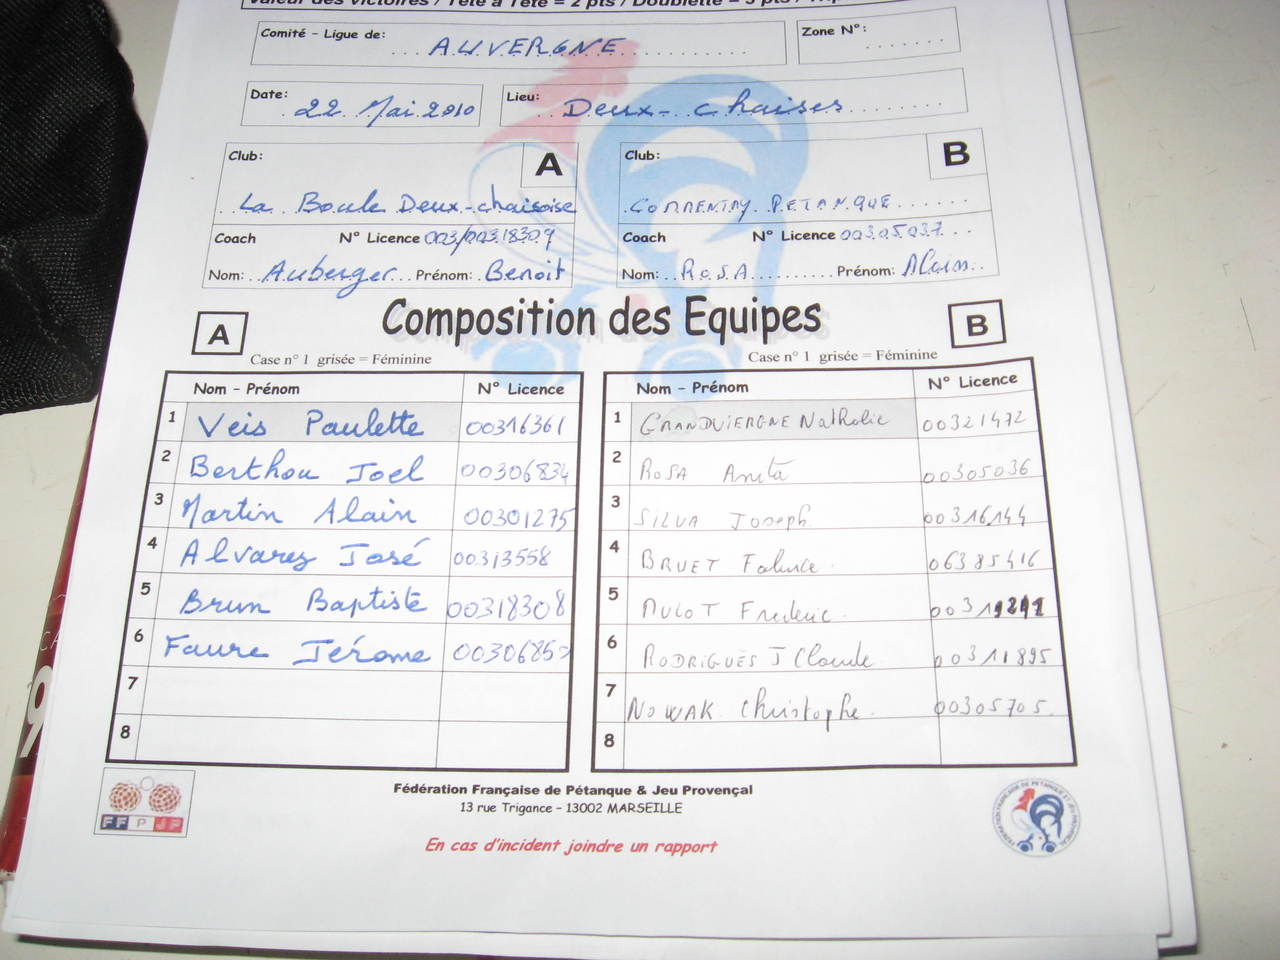 Valeur des victoires / Tête à Tête = 2 pts / Doublette = 3 pts /
Comité - Ligue de: AUVERGNE
Zone N°:
Date: 22 Mai 2010
Lieu: Deux-chaises
Club: A
La Boule Deux-chaisoise
Coach N° Licence 003/00318309
Nom: Auberger Prénom: Benoit
Club: B
COMMENTRY PETANQUE
Coach N° Licence 00305037
Nom: ROSA Prénom: Alain
Composition des Equipes
A
Case n° 1 grisée = Féminine
Nom - Prénom N° Licence
1 Veis Paulette 00316361
2 Berthou Joel 00306834
3 Martin Alain 00301275
4 Alvarez José 00313558
5 Brun Baptiste 00318308
6 Faure Jérome
7
8
B
Case n° 1 grisée = Féminine
Nom - Prénom N° Licence
1 GRANDVIERGNE Nathalie 00321472
2 ROSA Anita 00305036
3 SILVA Joseph 00316144
4 BRUET Fabrice 06385416
5 MULOT Frederic
6 RODRIGUES J Claude 00311895
7 NOWAK Christophe 00305705
8
Fédération Française de Pétanque & Jeu Provençal
13 rue Trigance - 13002 MARSEILLE
En cas d'incident joindre un rapport
FFPJP
9